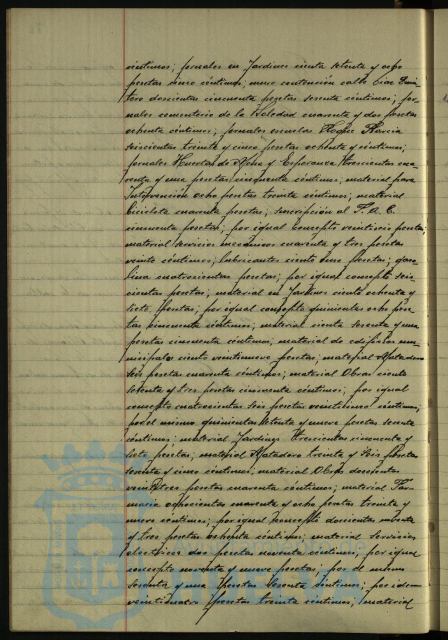 céntimos; jornales en Jardines ciento setenta y ocho
pesetas cinco céntimos; muro contención calle
tero doscientas cincuenta pesetas sesenta céntimos; jor-
nales cementerio de la Soledad cuarenta y dos pesetas
ochenta céntimos; jornales escuelas Roque Barcia
seiscientas treinta y cinco pesetas ochenta y céntimos;
jornales Huertas de y Esperanza trescientas cua-
renta y una pesetas cincuenta céntimos; material para
Intervención ocho pesetas treinta céntimos; material
bicicleta cuarenta pesetas; suscripción al
cincuenta pesetas; por igual concepto veintiseis pesetas;
material servicios mecánicos cuarenta y tres pesetas
veinte céntimos; lubricantes ciento once pesetas; gaso-
lina cuatrocientas pesetas; por igual concepto seis-
cientas pesetas; material en Jardines ciento ochenta y
siete pesetas; por igual concepto quinientas ocho pese-
tas cincuenta céntimos; material ciento sesenta y una
pesetas cincuenta céntimos; material de edificios mu-
nicipales ciento veintinueve pesetas; material Matadero
seis pesetas cuarenta céntimos; material Obras ciento
setenta y tres pesetas cincuenta céntimos; por igual
concepto cuatrocientas seis pesetas veinticinco céntimos;
por el mismo quinientas setenta y nueve pesetas sesenta
céntimos; material Jardines trescientas cincuenta y
siete pesetas; material Matadero treinta y seis pesetas
sesenta y cinco céntimos; material Obras doscientas
veintitres pesetas cuarenta céntimos; material Far-
macia ochocientas cuarenta y ocho pesetas treinta y
nueve céntimos; por igual concepto doscientas noventa
y tres pesetas ochenta céntimos; material servicios
eléctricos dos pesetas noventa céntimos; por igual
concepto noventa y nueve pesetas; por el mismo
sesenta y una pesetas sesenta céntimos; por idem
veinticuatro pesetas treinta céntimos; material